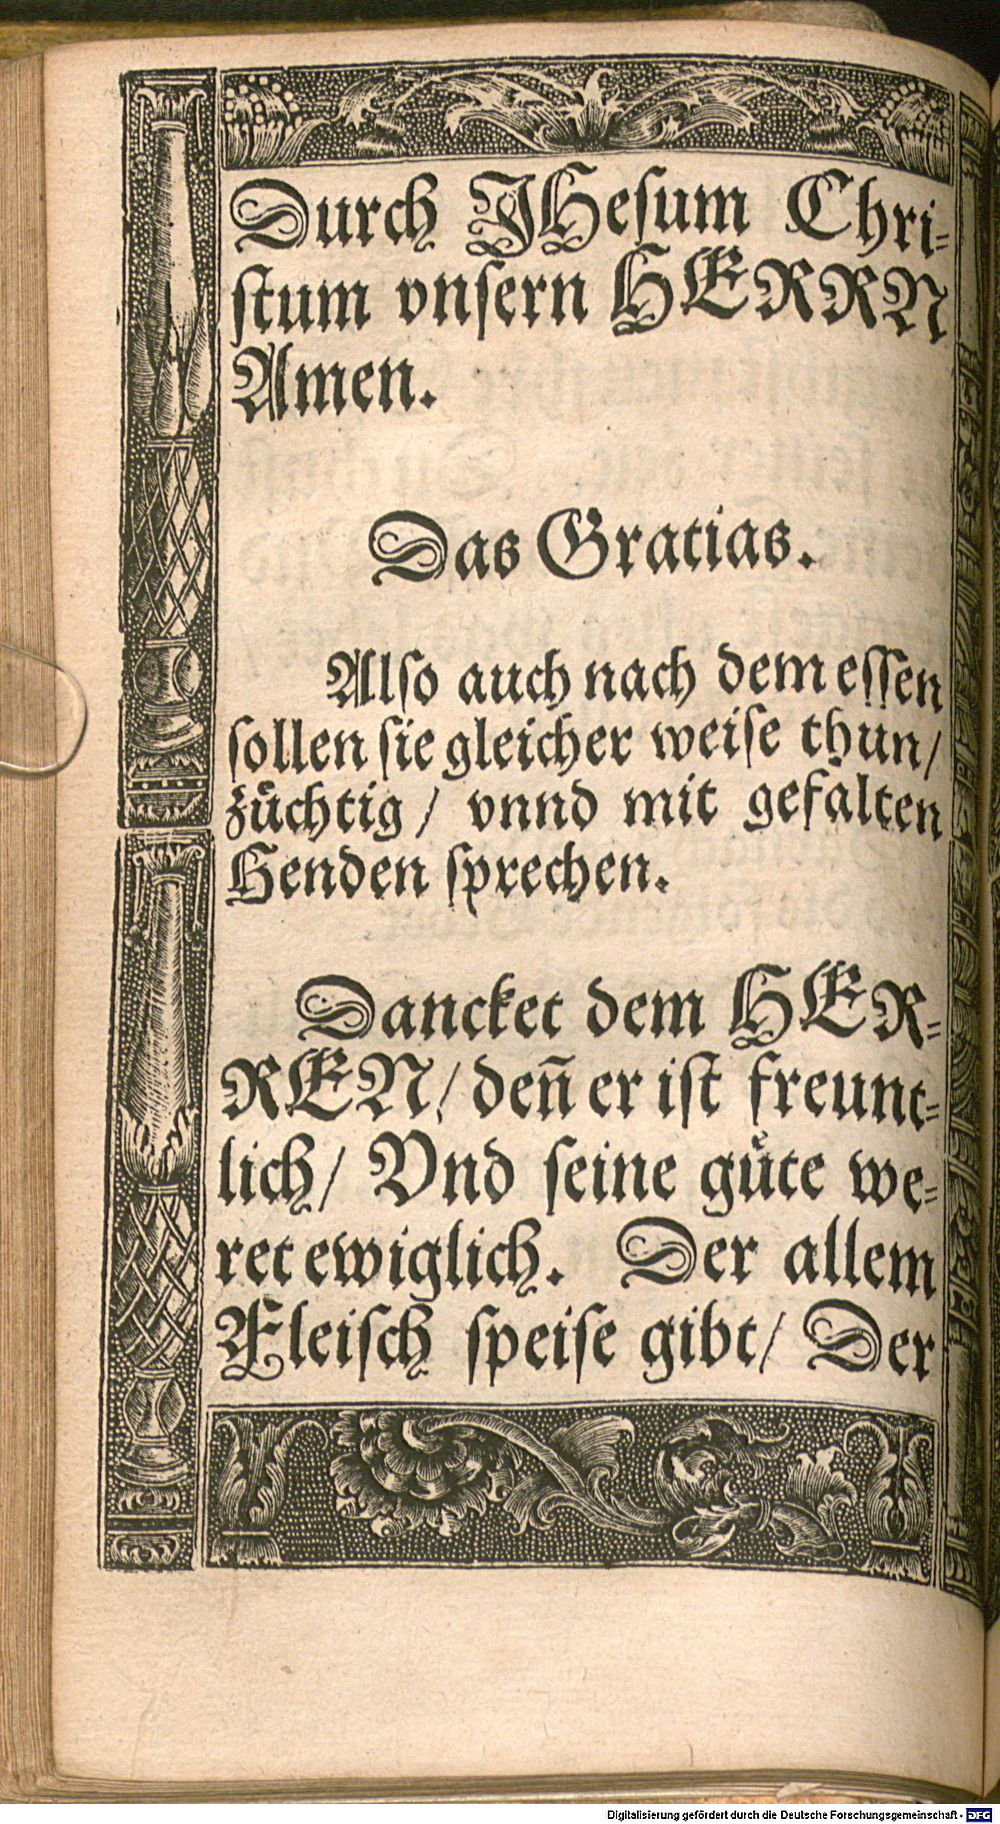 Durch JHeſum Chri-
ſtum vnſern HERRN
Amen.
Das Gratias.
Alſo auch nach dem eſſen
ſollen ſie gleicher weiſe thun/
zuͤchtig/ vnnd mit gefalten
Henden ſprechen.
Dancket dem HER-
REN/ deñ er iſt freunt-
lich/ Vnd ſeine guͤte we-
ret ewiglich. Der allem
Fleiſch ſpeiſe gibt/ Der
Digitalisierung gefördert durch die Deutsche Forschungsgemeinschaft - DFG